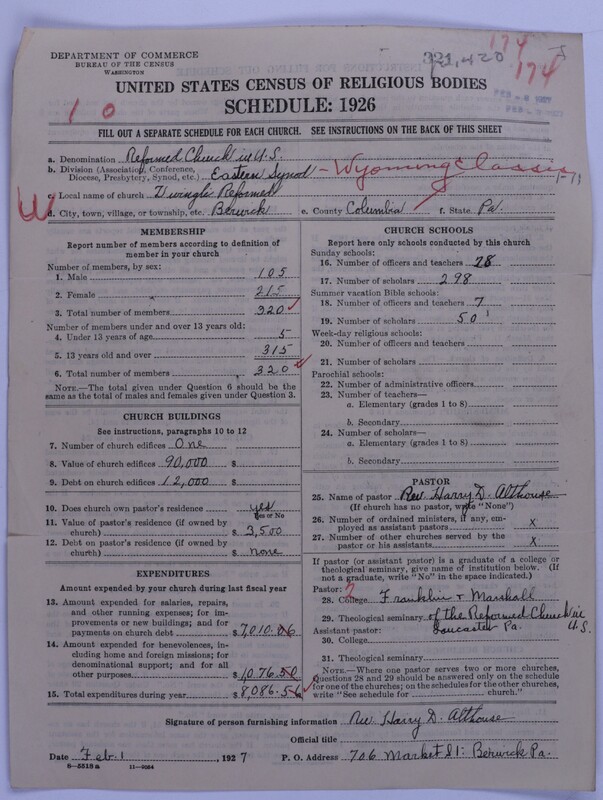 DEPARTMENT OF COMMERCE
BUREAU OF THE CENSUS
WASHINGTON
321,420
174
174
UNITED STATES CENSUS OF RELIGIOUS BODIES
SCHEDULE: 1926
1 0
FILL OUT A SEPARATE SCHEDULE FOR EACH CHURCH. SEE INSTRUCTIONS ON THE BACK OF THIS SHEET
a. Denomination Reformed Church in U.S.
b. Division (Association, Conference, Diocese, Presbytery, Synod, etc.) Eastern Synod - Wyoming Classis
c. Local name of church Zwingli Reformed
d. City, town, village, or township, etc. Berwick e. County Columbia f. State Pa.
MEMBERSHIP
Report number of members according to definition of
member in your church
Number of members, by sex:
1. Male 105
2. Female 215
3. Total number of members 320
Number of members under and over 13 years old:
4. Under 13 years of age 5
5. 13 years old and over 315
6. Total number of members 320
NOTE.—The total given under Question 6 should be
same as the total of males and females given under Question 3.
CHURCH BUILDINGS
See instructions, paragraphs 10 to 12
7. Number of church edifices One
8. Value of church edifices 90,000 $
9. Debt on church edifices 12,000 $
10. Does church own pastor's residence yes
Yes or No
11. Value of pastor's residence (if owned by
church) $ 3,500
12. Debt on pastor's residence (if owned by
church) $ none
EXPENDITURES
Amount expended by your church during last fiscal year
13. Amount expended for salaries, repairs,
and other running expenses; for im-
provements or new buildings; and for
payments on church debt $ 7,010.06
14. Amount expended for benevolences, in-
cluding home and foreign missions; for
denominational support; and for all
other purposes 1,076.50
15. Total expenditures during year $ 8,086.56
CHURCH SCHOOLS
Report here only schools conducted by this church
Sunday schools:
16. Number of officers and teachers 28
17. Number of scholars 298
Summer vacation Bible schools:
18. Number of officers and teachers 7
19. Number of scholars 50
Week-day religious schools:
20. Number of officers and teachers
21. Number of scholars
Parochial schools:
22. Number of administrative officers
23. Number of teachers—
a. Elementary (grades 1 to 8)
b. Secondary
24. Number of scholars—
a. Elementary (grades 1 to 8)
b. Secondary
PASTOR
25. Name of pastor Rev. Harry D. Althouse
(If church has no pastor, write "None")
26. Number of ordained ministers, if any, em-
ployed as assistant pastors x
27. Number of other churches served by the
pastor or his assistants x
If pastor (or assistant pastor) is a graduate of a college or
theological seminary, give name of institution below. (If
not a graduate, write "No" in the space indicated.)
Pastor: ?
28. College Franklin & Marshall
29. Theological seminary of the Reformed Church in U.S.
Assistant pastor: Lancaster Pa.
30. College
31. Theological seminary
NOTE.—Where one pastor serves two or more churches,
Questions 28 and 29 should be answered only on the schedule
for one of the churches; on schedules for the other churches,
write "See schedule for church."
Signature of person furnishing information Rev. Harry D. Althouse
Official title
Date Feb. 1, 1927 P. O. Address 706 Market St. Berwick Pa.
8—5518 a 11—9024